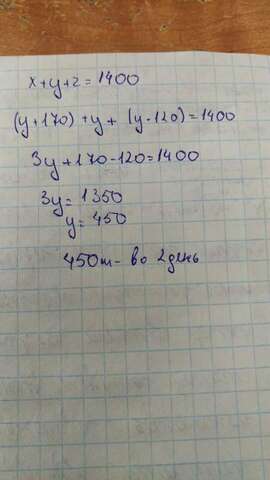 x+y+z=1400
(y+170)+y+(y-120)=1400
3y+170-120=1400
3y=1350
y=450
450т- во 2 день